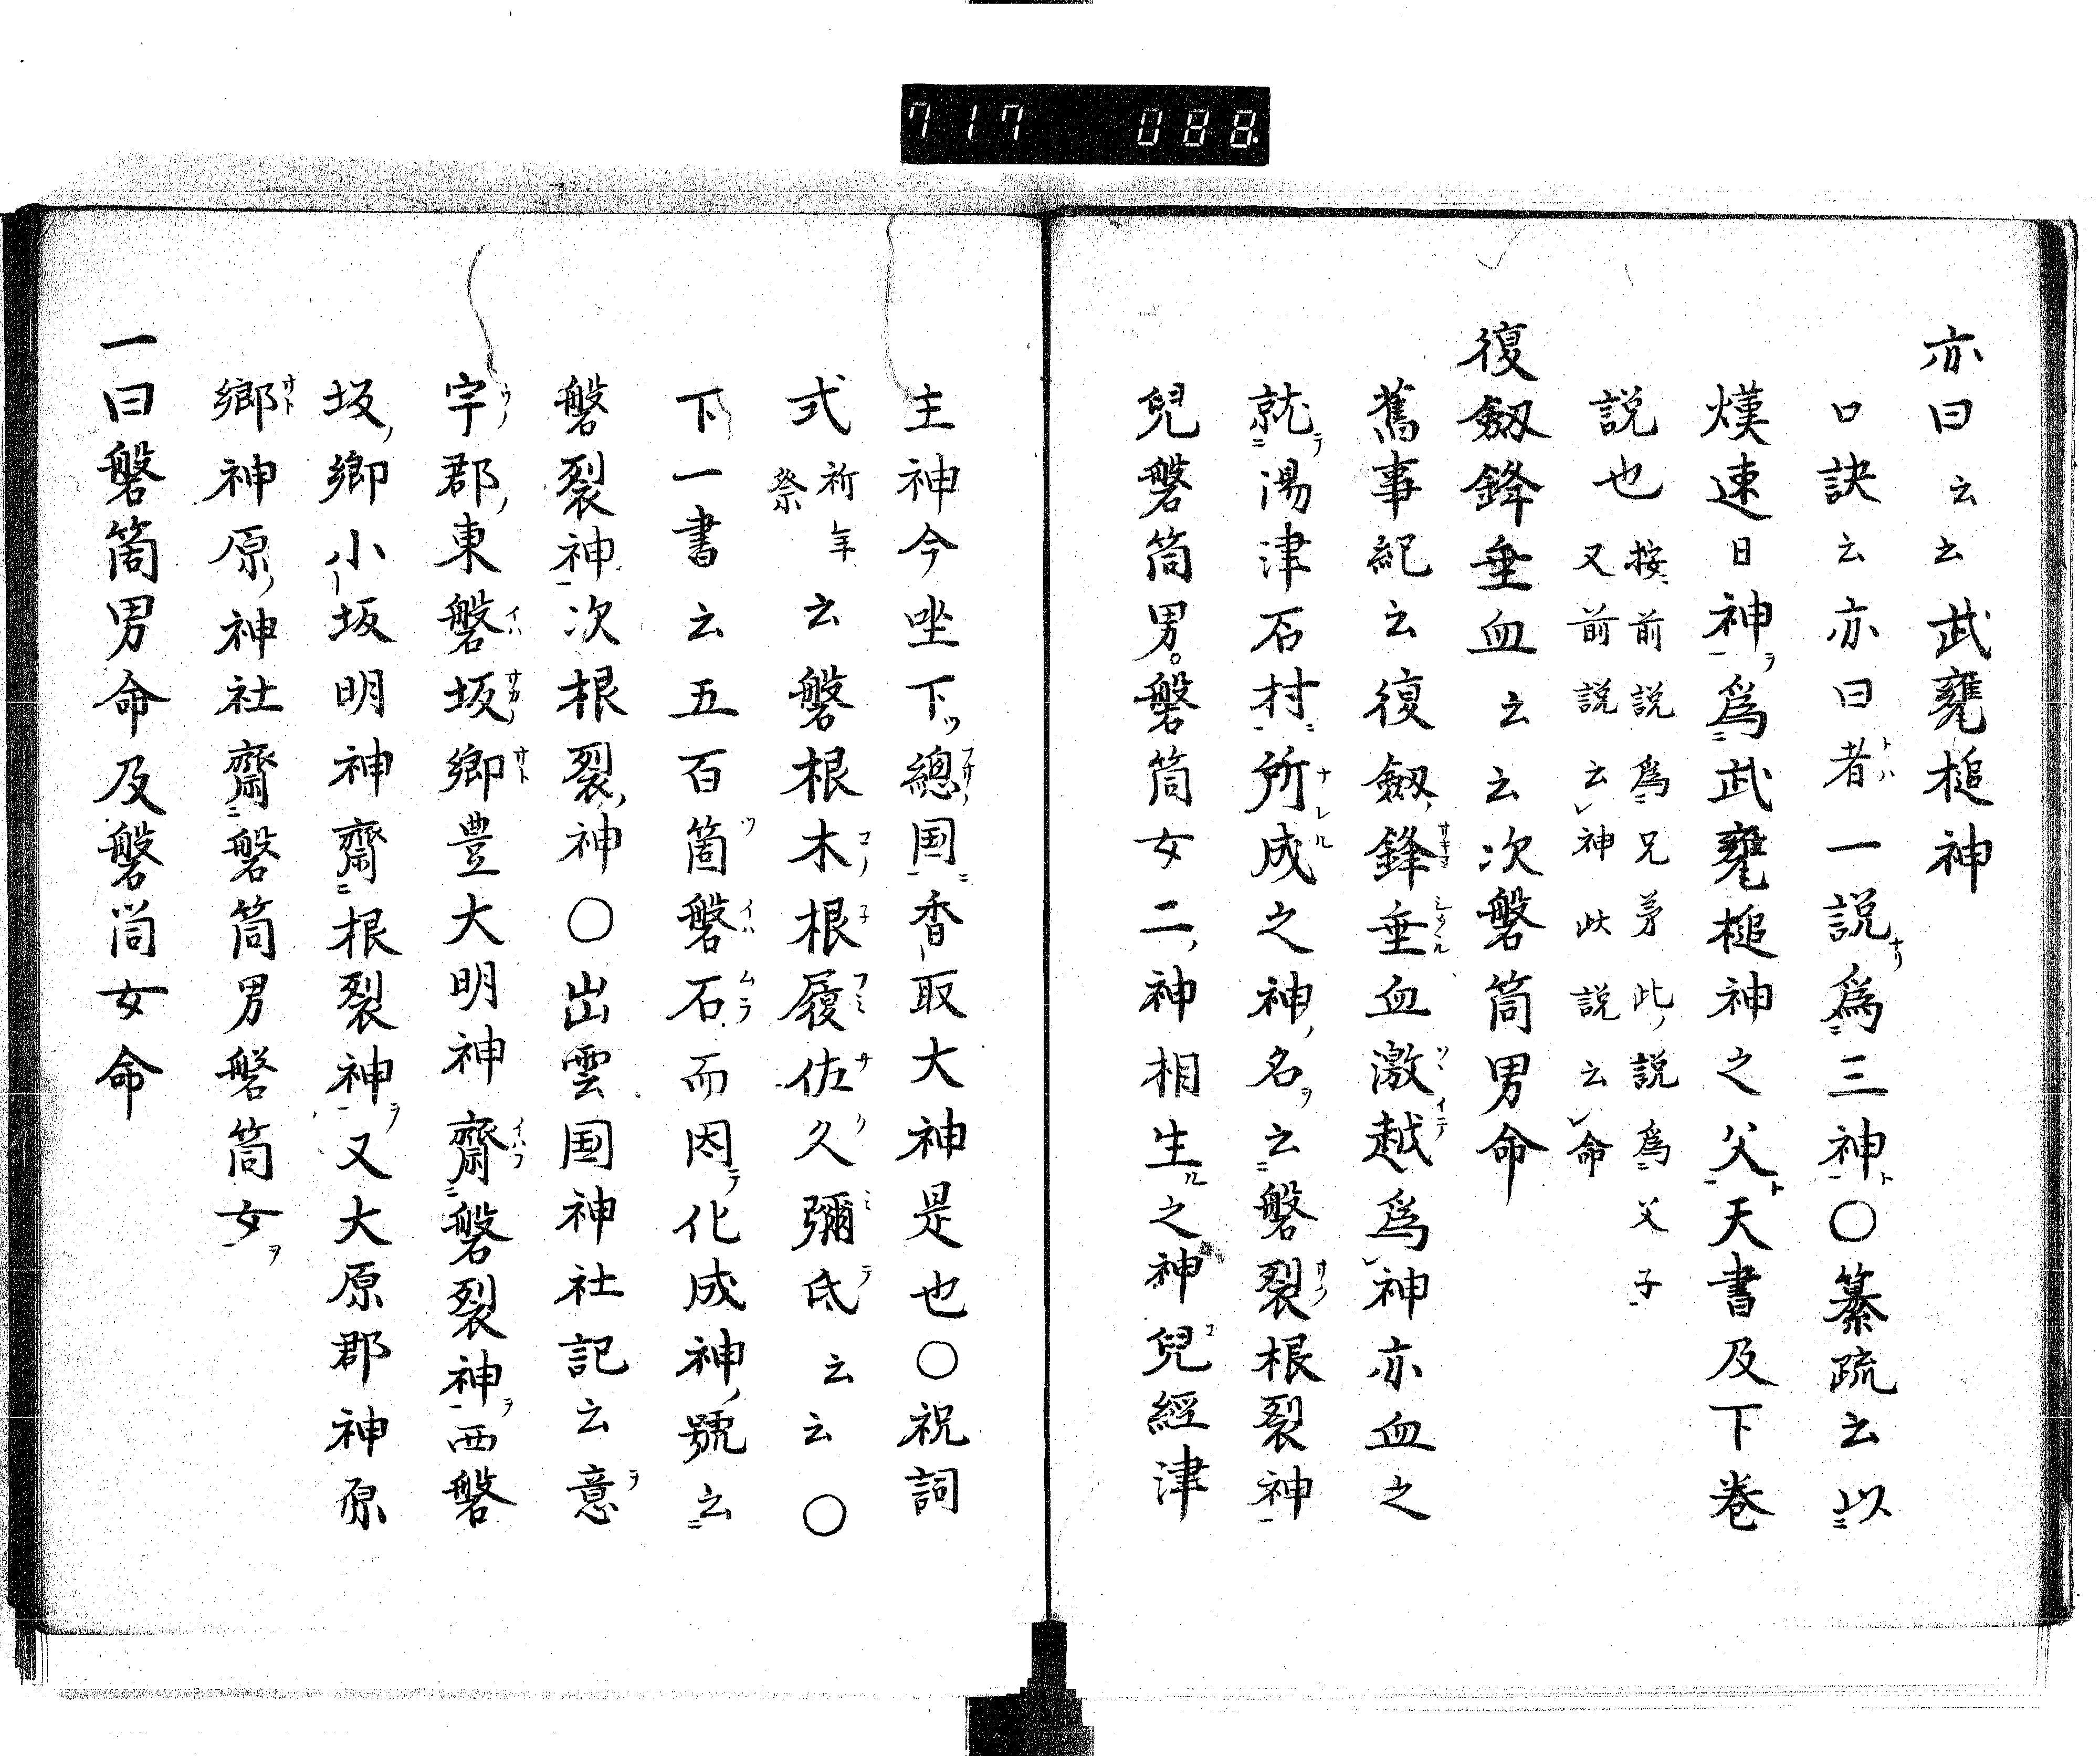 717 088
亦曰云云武甕槌神
口訣云亦曰者一説爲三神○纂疏云以
熯速日神爲武甕槌神之父天書及下巻
説也按前説爲兄弟此説爲父子
又前説云神此説云命
復劔鋒垂血云云次磐筒男命
舊事紀云復劔鋒垂血激越爲神亦血之
就湯津石村所成之神名云磐裂根裂神
兒磐筒男磐筒女二神相生之神兒經津
主神今坐下總国香取大神是也○祝詞
式祈年祭云磐根木根履佐久彌氐云云○
下一書云五百箇磐石而因化成神號云
磐裂神次根裂神○出雲国神社記云意
宇郡東磐坂郷豊大明神齋磐裂神西磐
坂郷小坂明神齋根裂神又大原郡神原
郷神原神社齋磐筒男磐筒女
一曰磐筒男命及磐筒女命